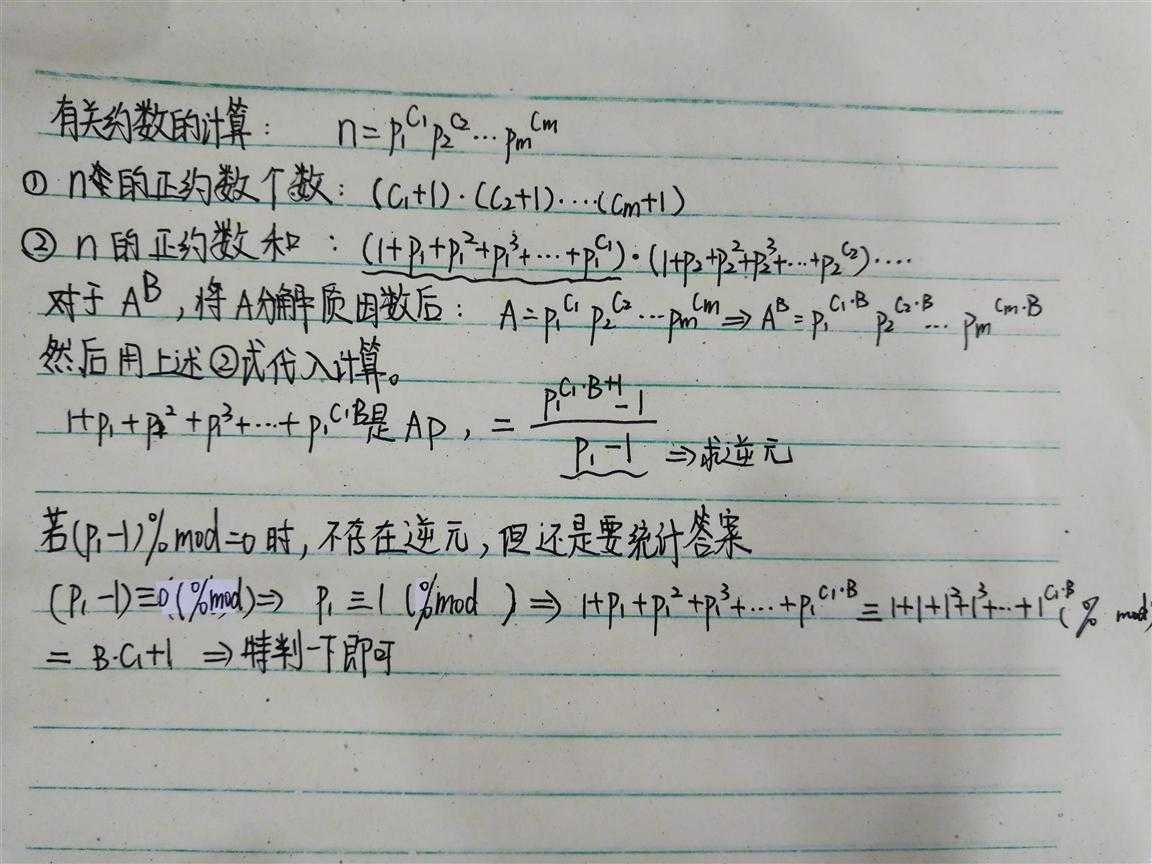 有关约数的计算: n=p₁^C₁ p₂^C₂ ⋯ pₘ^Cₘ
① n的正约数个数: (C₁+1)·(C₂+1)·⋯·(Cₘ+1)
② n的正约数和: (1+p₁+p₁²+p₁³+⋯+p₁^C₁)·(1+p₂+p₂²+p₂³+⋯+p₂^C₂)⋯
对于A^B,将A分解质因数后: A=p₁^C₁ p₂^C₂ ⋯ pₘ^Cₘ ⇒ A^B=p₁^(C₁·B) p₂^(C₂·B) ⋯ pₘ^(Cₘ·B)
然后用上述②式代入计算。
1+p₁+p₁²+p₁³+⋯+p₁^(C₁·B)是AP, = (p₁^(C₁·B+1)-1)/(p₁-1) ⇒求逆元
若(p₁-1)%mod=0时,不存在逆元,但还是要统计答案
(p₁-1)≡0(%mod)⇒ p₁≡1(%mod) ⇒ 1+p₁+p₁²+p₁³+⋯+p₁^(C₁·B)≡1+1+1²+1³+⋯+1^(C₁·B)(% mod)
= B·C₁+1 ⇒特判一下即可